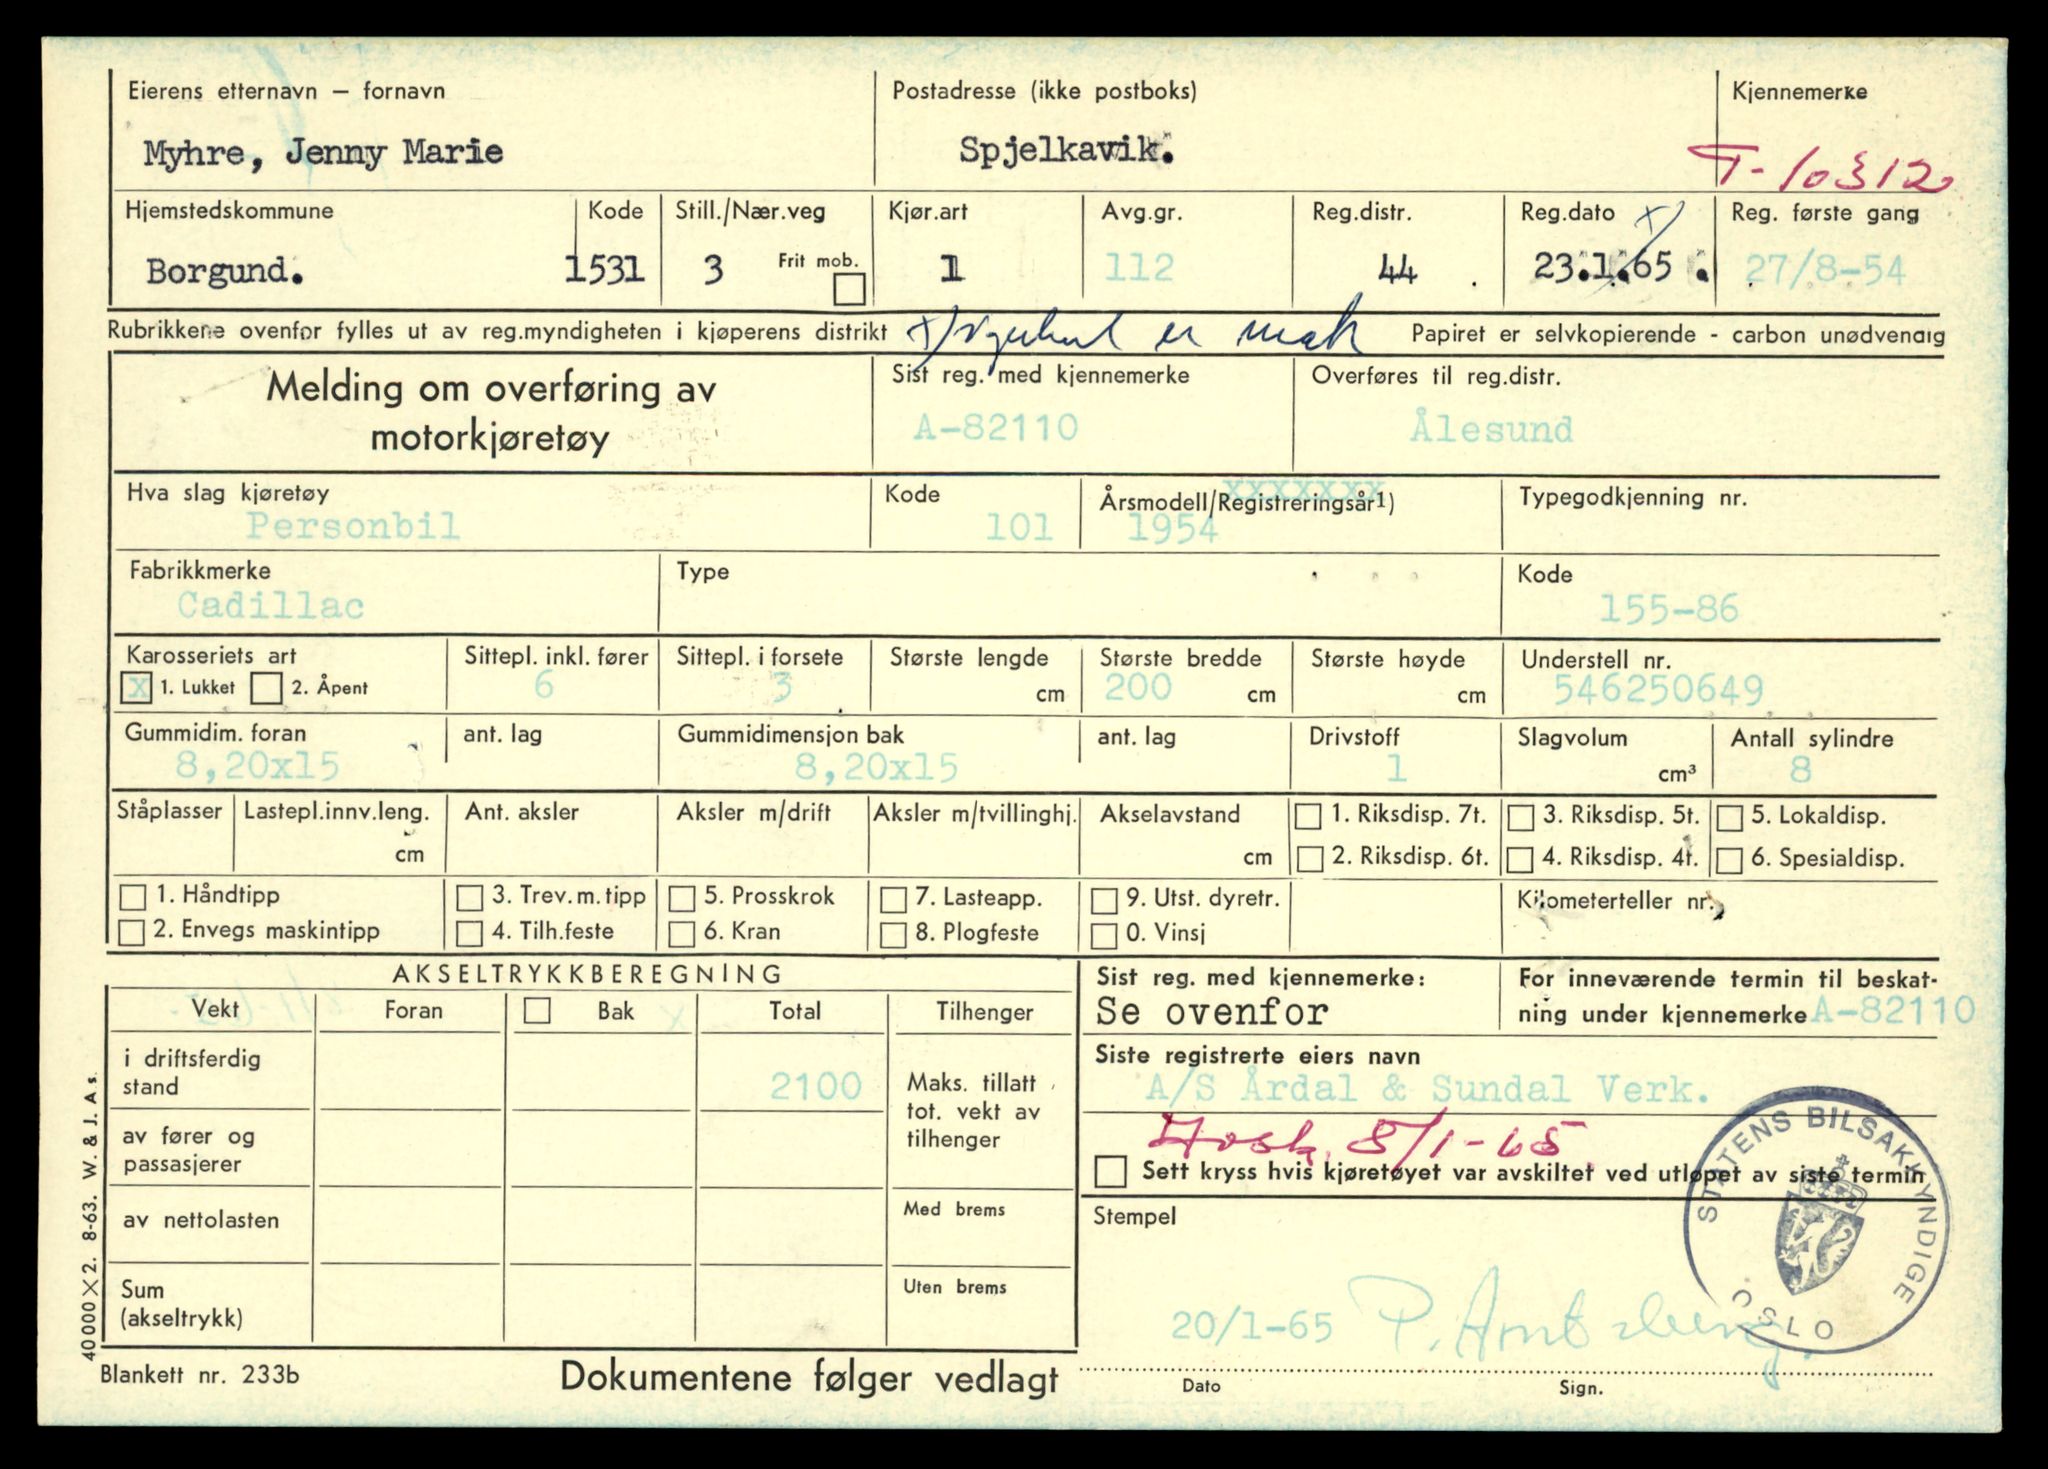 Eierens etternavn — fornavn Postadresse (ikke postboks) Kjennemerke
Myhre, Jenny Marie Spjelkavik. T-10312
Hjemstedskommune Kode Still./Nær.veg Kjør.art Avg.gr. Reg.distr. Reg.dato x) Reg. første gang
Borgund. 1531 3 Frit mob. 1 112 44 23.1.65. 27/8-54
Rubrikkene ovenfor fylles ut av reg.myndigheten i kjøperens distrikt x) er Papiret er selvkopierende - carbon unødvendig
Melding om overføring av
motorkjøretøy
Sist reg. med kjennemerke Overføres til reg.distr.
A-82110 Ålesund
Hva slag kjøretøy Kode Årsmodell/Registreringsår1) xxxxxxx Typegodkjenning nr.
Personbil 101 1954
Fabrikkmerke Type Kode
Cadillac 155-86
Karosseriets art Sittepl. inkl. fører Sittepl. i forsete Største lengde Største bredde Største høyde Understell nr.
x 1. Lukket 2. Åpent 6 3 cm 200 cm cm 546250649
Gummidim. foran ant. lag Gummidimensjon bak ant. lag Drivstoff Slagvolum Antall sylindre
8,20x15 8,20x15 1 cm³ 8
Ståplasser Lastepl.innv.leng. Ant. aksler Aksler m/drift Aksler m/tvillinghj. Akselavstand 1. Riksdisp. 7t. 3. Riksdisp. 5t. 5. Lokaldisp.
cm cm 2. Riksdisp. 6t. 4. Riksdisp. 4t. 6. Spesialdisp.
1. Håndtipp 3. Trev.m.tipp 5. Prosskrok 7. Lasteapp. 9. Utst. dyretr. Kilometerteller nr.
2. Envegs maskintipp 4. Tilh.feste 6. Kran 8. Plogfeste 0. Vinsj
AKSELTRYKKBEREGNING
Vekt Foran Bak Total Tilhenger
i driftsferdig stand 2100 Maks. tillatt tot. vekt av tilhenger
av fører og passasjerer
av nettolasten Med brems
Sum (akseltrykk) Uten brems
Sist reg. med kjennemerke: For inneværende termin til beskat-
Se ovenfor ning under kjennemerke A-82110
Siste registrerte eiers navn
A/S Årdal & Sundal Verk.
8/1-65
Sett kryss hvis kjøretøyet var avskiltet ved utløpet av siste termin
Stempel
STATENS BILSAKKYNDIGE
OSLO
20/1-65
Dato Sign.
Blankett nr. 233b Dokumentene følger vedlagt
40000 X 2. 8-63. W. & J. A s.